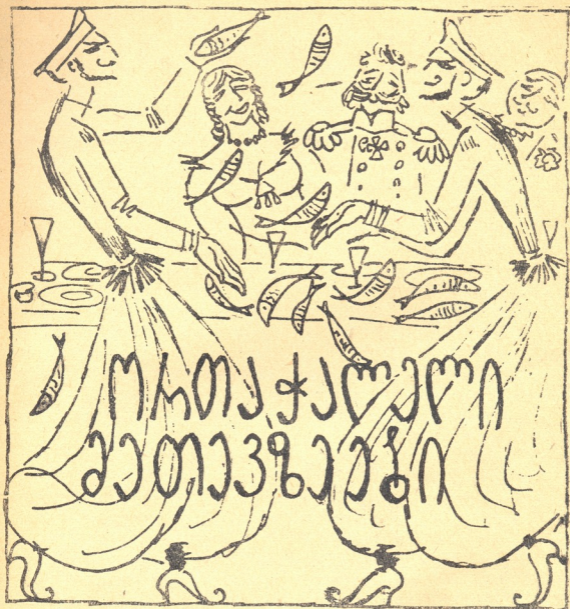 ორთაჭალელი
მეთევზეები